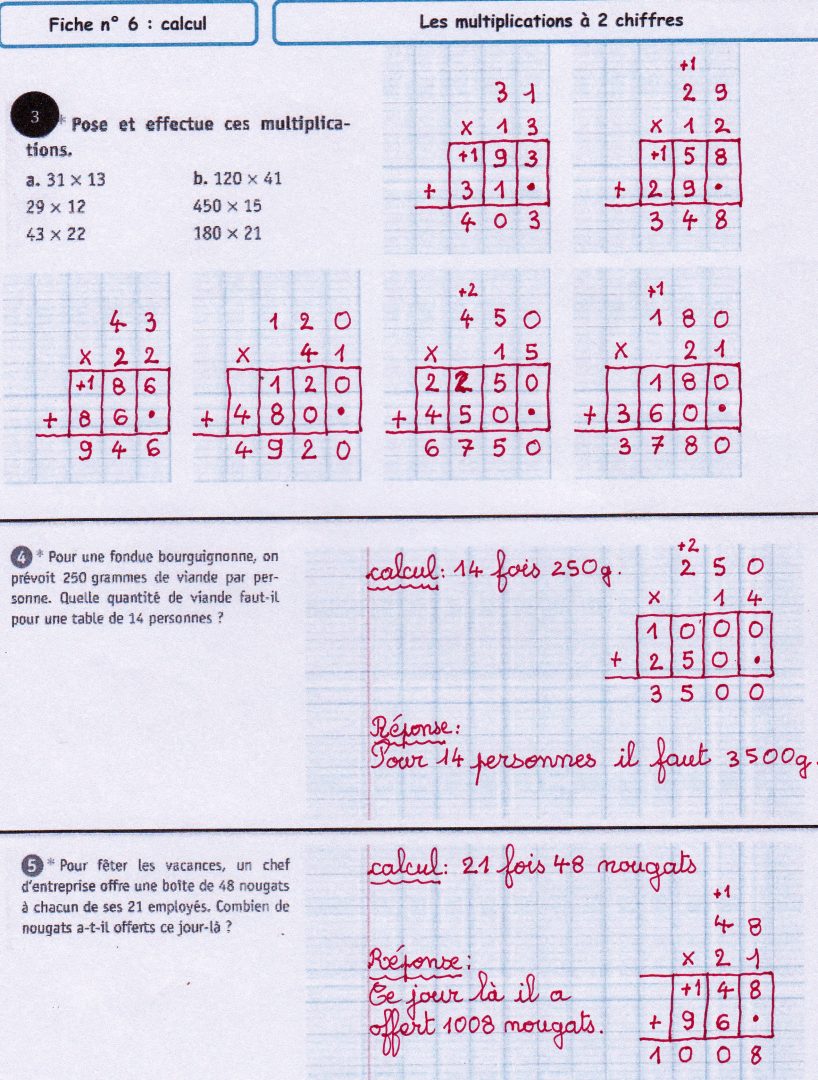 Fiche n° 6 : calcul
Les multiplications à 2 chiffres
3 * Pose et effectue ces multiplica-
tions.
a. 31 × 13 b. 120 × 41
29 × 12 450 × 15
43 × 22 180 × 21
3 1
x 1 3
+1 9 3
+ 3 1 •
4 0 3
+1
2 9
x 1 2
+1 5 8
+ 2 9 •
3 4 8
4 3
x 2 2
+1 8 6
+ 8 6 •
9 4 6
1 2 0
x 4 1
1 2 0
+ 4 8 0 •
4 9 2 0
+2
4 5 0
x 1 5
2 2 5 0
+ 4 5 0 •
6 7 5 0
+1
1 8 0
x 2 1
1 8 0
+ 3 6 0 •
3 7 8 0
4 * Pour une fondue bourguignonne, on
prévoit 250 grammes de viande par per-
sonne. Quelle quantité de viande faut-il
pour une table de 14 personnes ?
calcul: 14 fois 250g.
+2
2 5 0
x 1 4
1 0 0 0
+ 2 5 0 •
3 5 0 0
Réponse:
Pour 14 personnes il faut 3500g.
5 * Pour fêter les vacances, un chef
d'entreprise offre une boîte de 48 nougats
à chacun de ses 21 employés. Combien de
nougats a-t-il offerts ce jour-là ?
calcul: 21 fois 48 nougats
+1
4 8
x 2 1
+1 4 8
+ 9 6 •
1 0 0 8
Réponse:
Ce jour là il a
offert 1008 nougats.